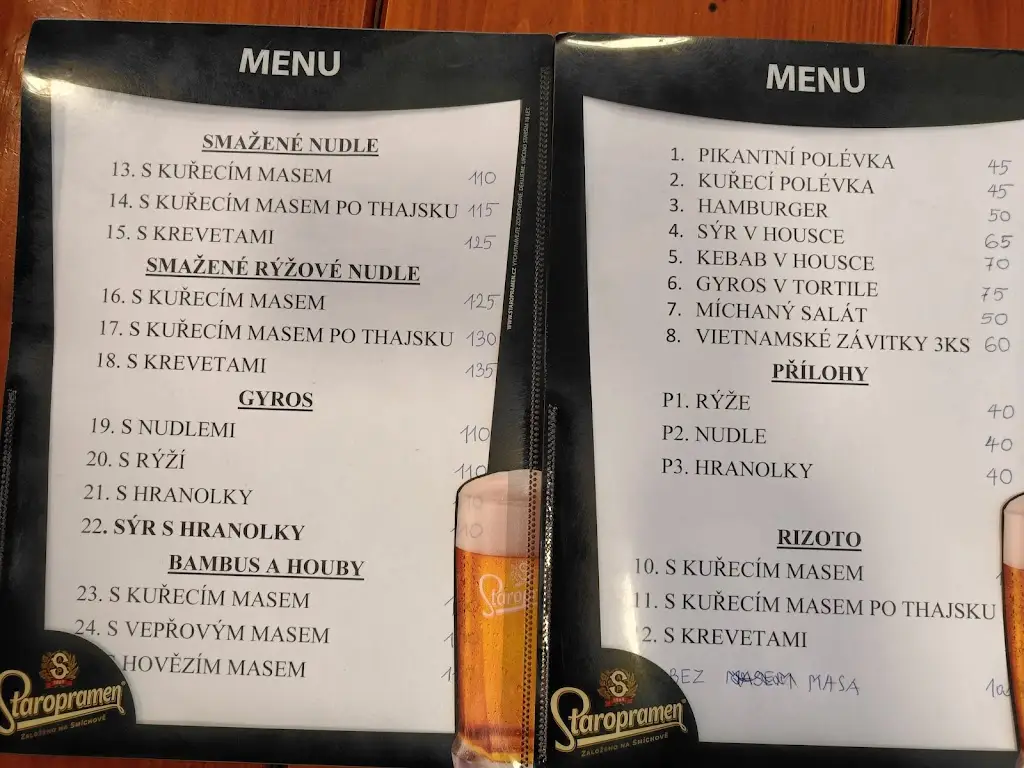 MENU
SMAŽENÉ NUDLE
13. S KUŘECÍM MASEM 110
14. S KUŘECÍM MASEM PO THAJSKU 115
15. S KREVETAMI 125
SMAŽENÉ RÝŽOVÉ NUDLE
16. S KUŘECÍM MASEM 125
17. S KUŘECÍM MASEM PO THAJSKU 130
18. S KREVETAMI 135
GYROS
19. S NUDLEMI 110
20. S RÝŽÍ 110
21. S HRANOLKY
22. SÝR S HRANOLKY
BAMBUS A HOUBY
23. S KUŘECÍM MASEM
24. S VEPŘOVÝM MASEM
S HOVĚZÍM MASEM
Staropramen
ZALOŽENO NA SMÍCHOVĚ
MENU
1. PIKANTNÍ POLÉVKA 45
2. KUŘECÍ POLÉVKA 45
3. HAMBURGER 50
4. SÝR V HOUSCE 65
5. KEBAB V HOUSCE 70
6. GYROS V TORTILE 75
7. MÍCHANÝ SALÁT 50
8. VIETNAMSKÉ ZÁVITKY 3KS 60
PŘÍLOHY
P1. RÝŽE 40
P2. NUDLE 40
P3. HRANOLKY 40
RIZOTO
10. S KUŘECÍM MASEM
11. S KUŘECÍM MASEM PO THAJSKU
2. S KREVETAMI
BEZ MASA
Staropramen
ZALOŽENO NA SMÍCHOVĚ